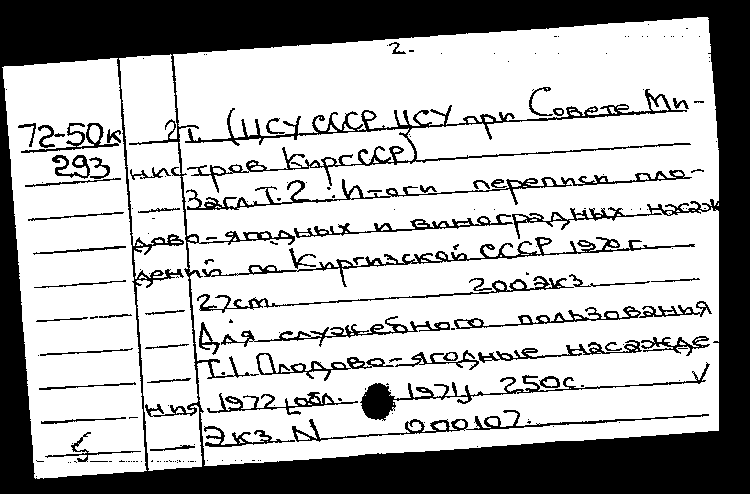 2.
72-50к 2т. (ЦСУ СССР ЦСУ при Совете Ми-
293 нистров КиргССР)
Загл.Т.2 : Итоги переписи пло-
дово-ягодных и виноградных насаж
дений по Киргизской СССР 1970 г.
27см. 200экз.
Для служебного пользования
Т.1. Плодово-ягодные насажде-
ния. 1972 [обл. 1971]. 250с. V
Экз. N 000107.